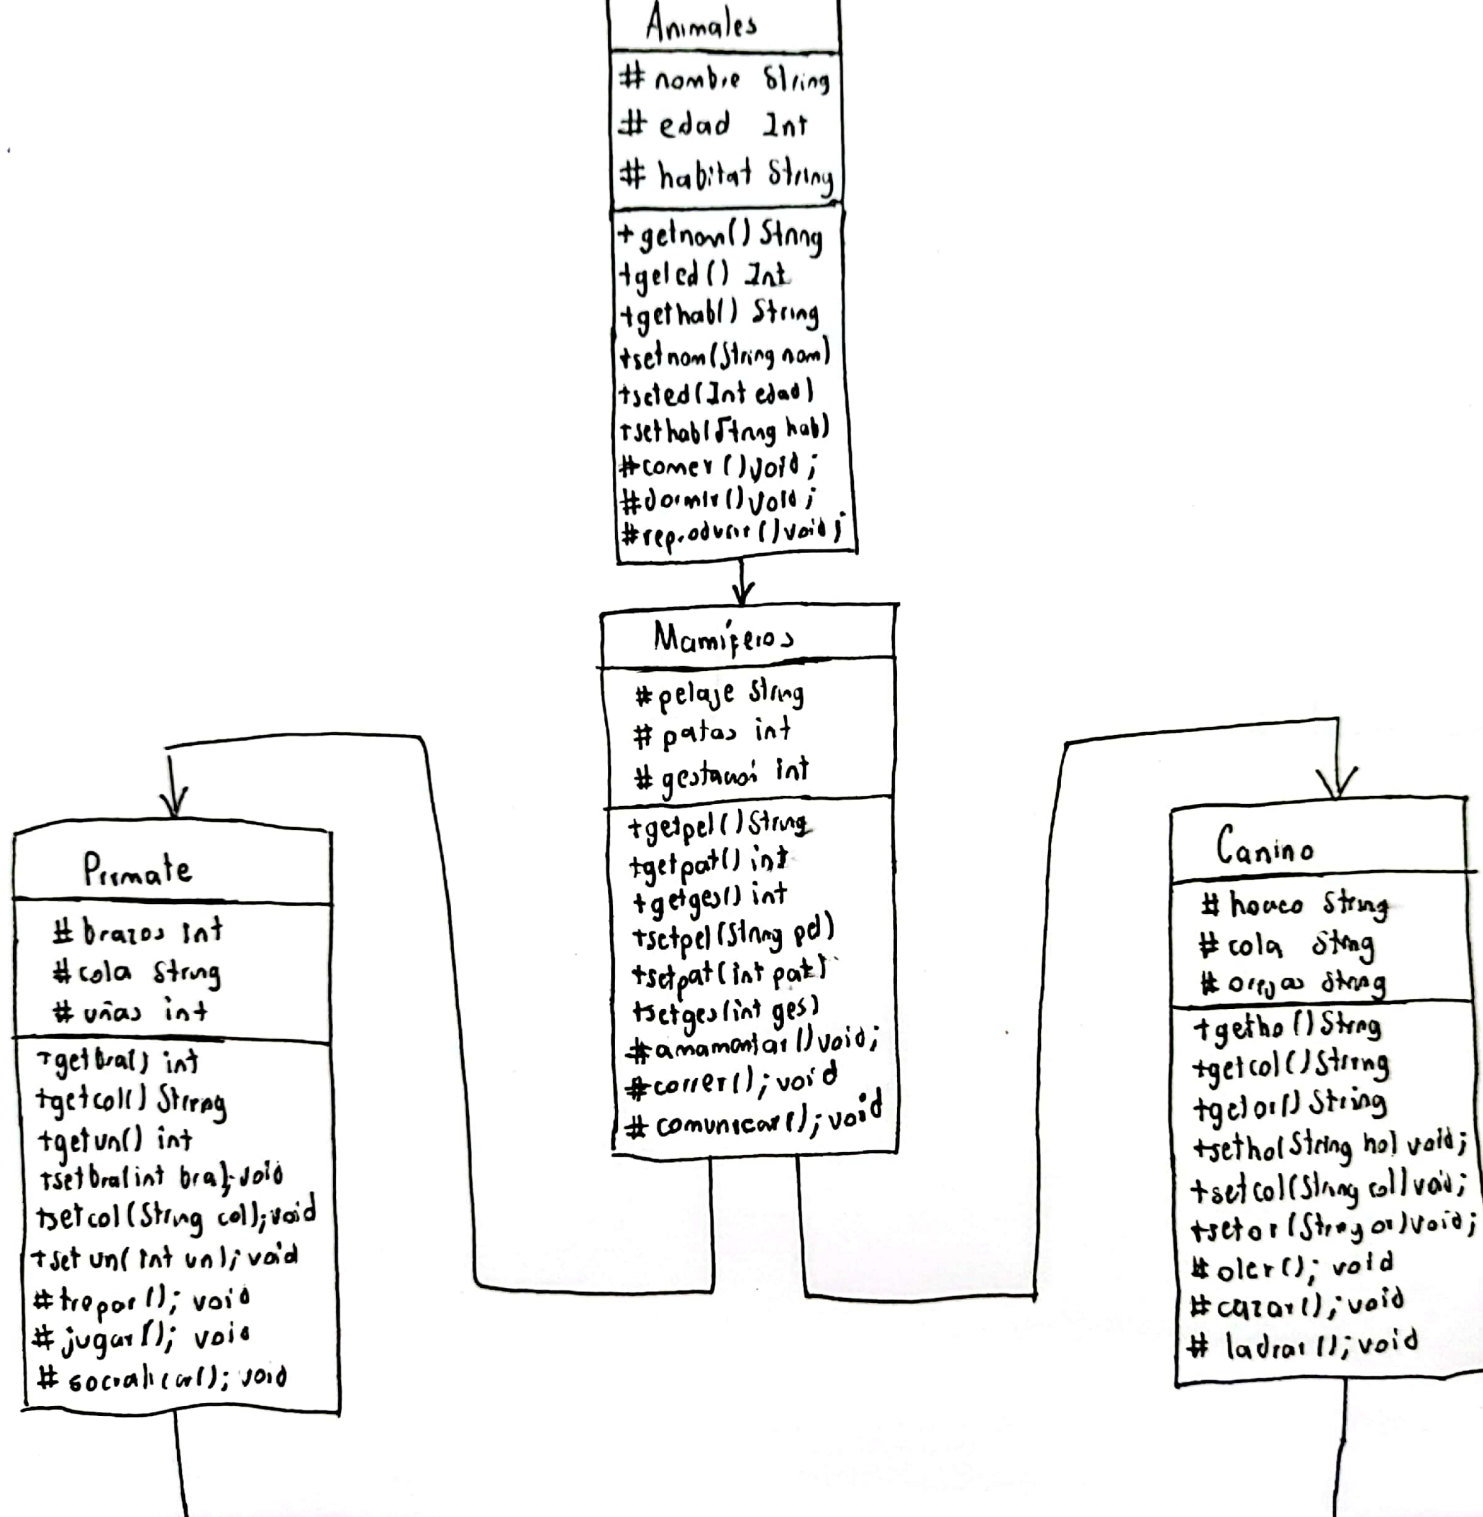 Animales
# nombre String
# edad Int
# habitat String
+ getnom() String
+geted() Int
+gethab() String
+setnom(String nom)
+seted(Int edad)
+sethab(String hab)
#comer()void;
#dormir()void;
#reproducir()void;
Mamíferos
# pelaje String
# patas int
# gestacioi int
+getpel()String
+getpat() int
+getges() int
+setpel(String pel)
+setpat(int pat)
+setges(int ges)
#amamantar()void;
#correr();void
# comunicar();void
Primate
# brazos int
# cola String
# uñas int
+getbra() int
+getcol() String
+getun() int
+setbra(int bra);void
+setcol(String col);void
+set un(int un); void
#trepar(); void
# jugar(); void
# socializar(); void
Canino
# hocico String
# cola String
# orejas String
+getho()String
+getcol()String
+getor() String
+setho(String ho) void;
+setcol(String col)void;
+setor(String or)void;
# oler(); void
# cazar();void
# ladrar();void